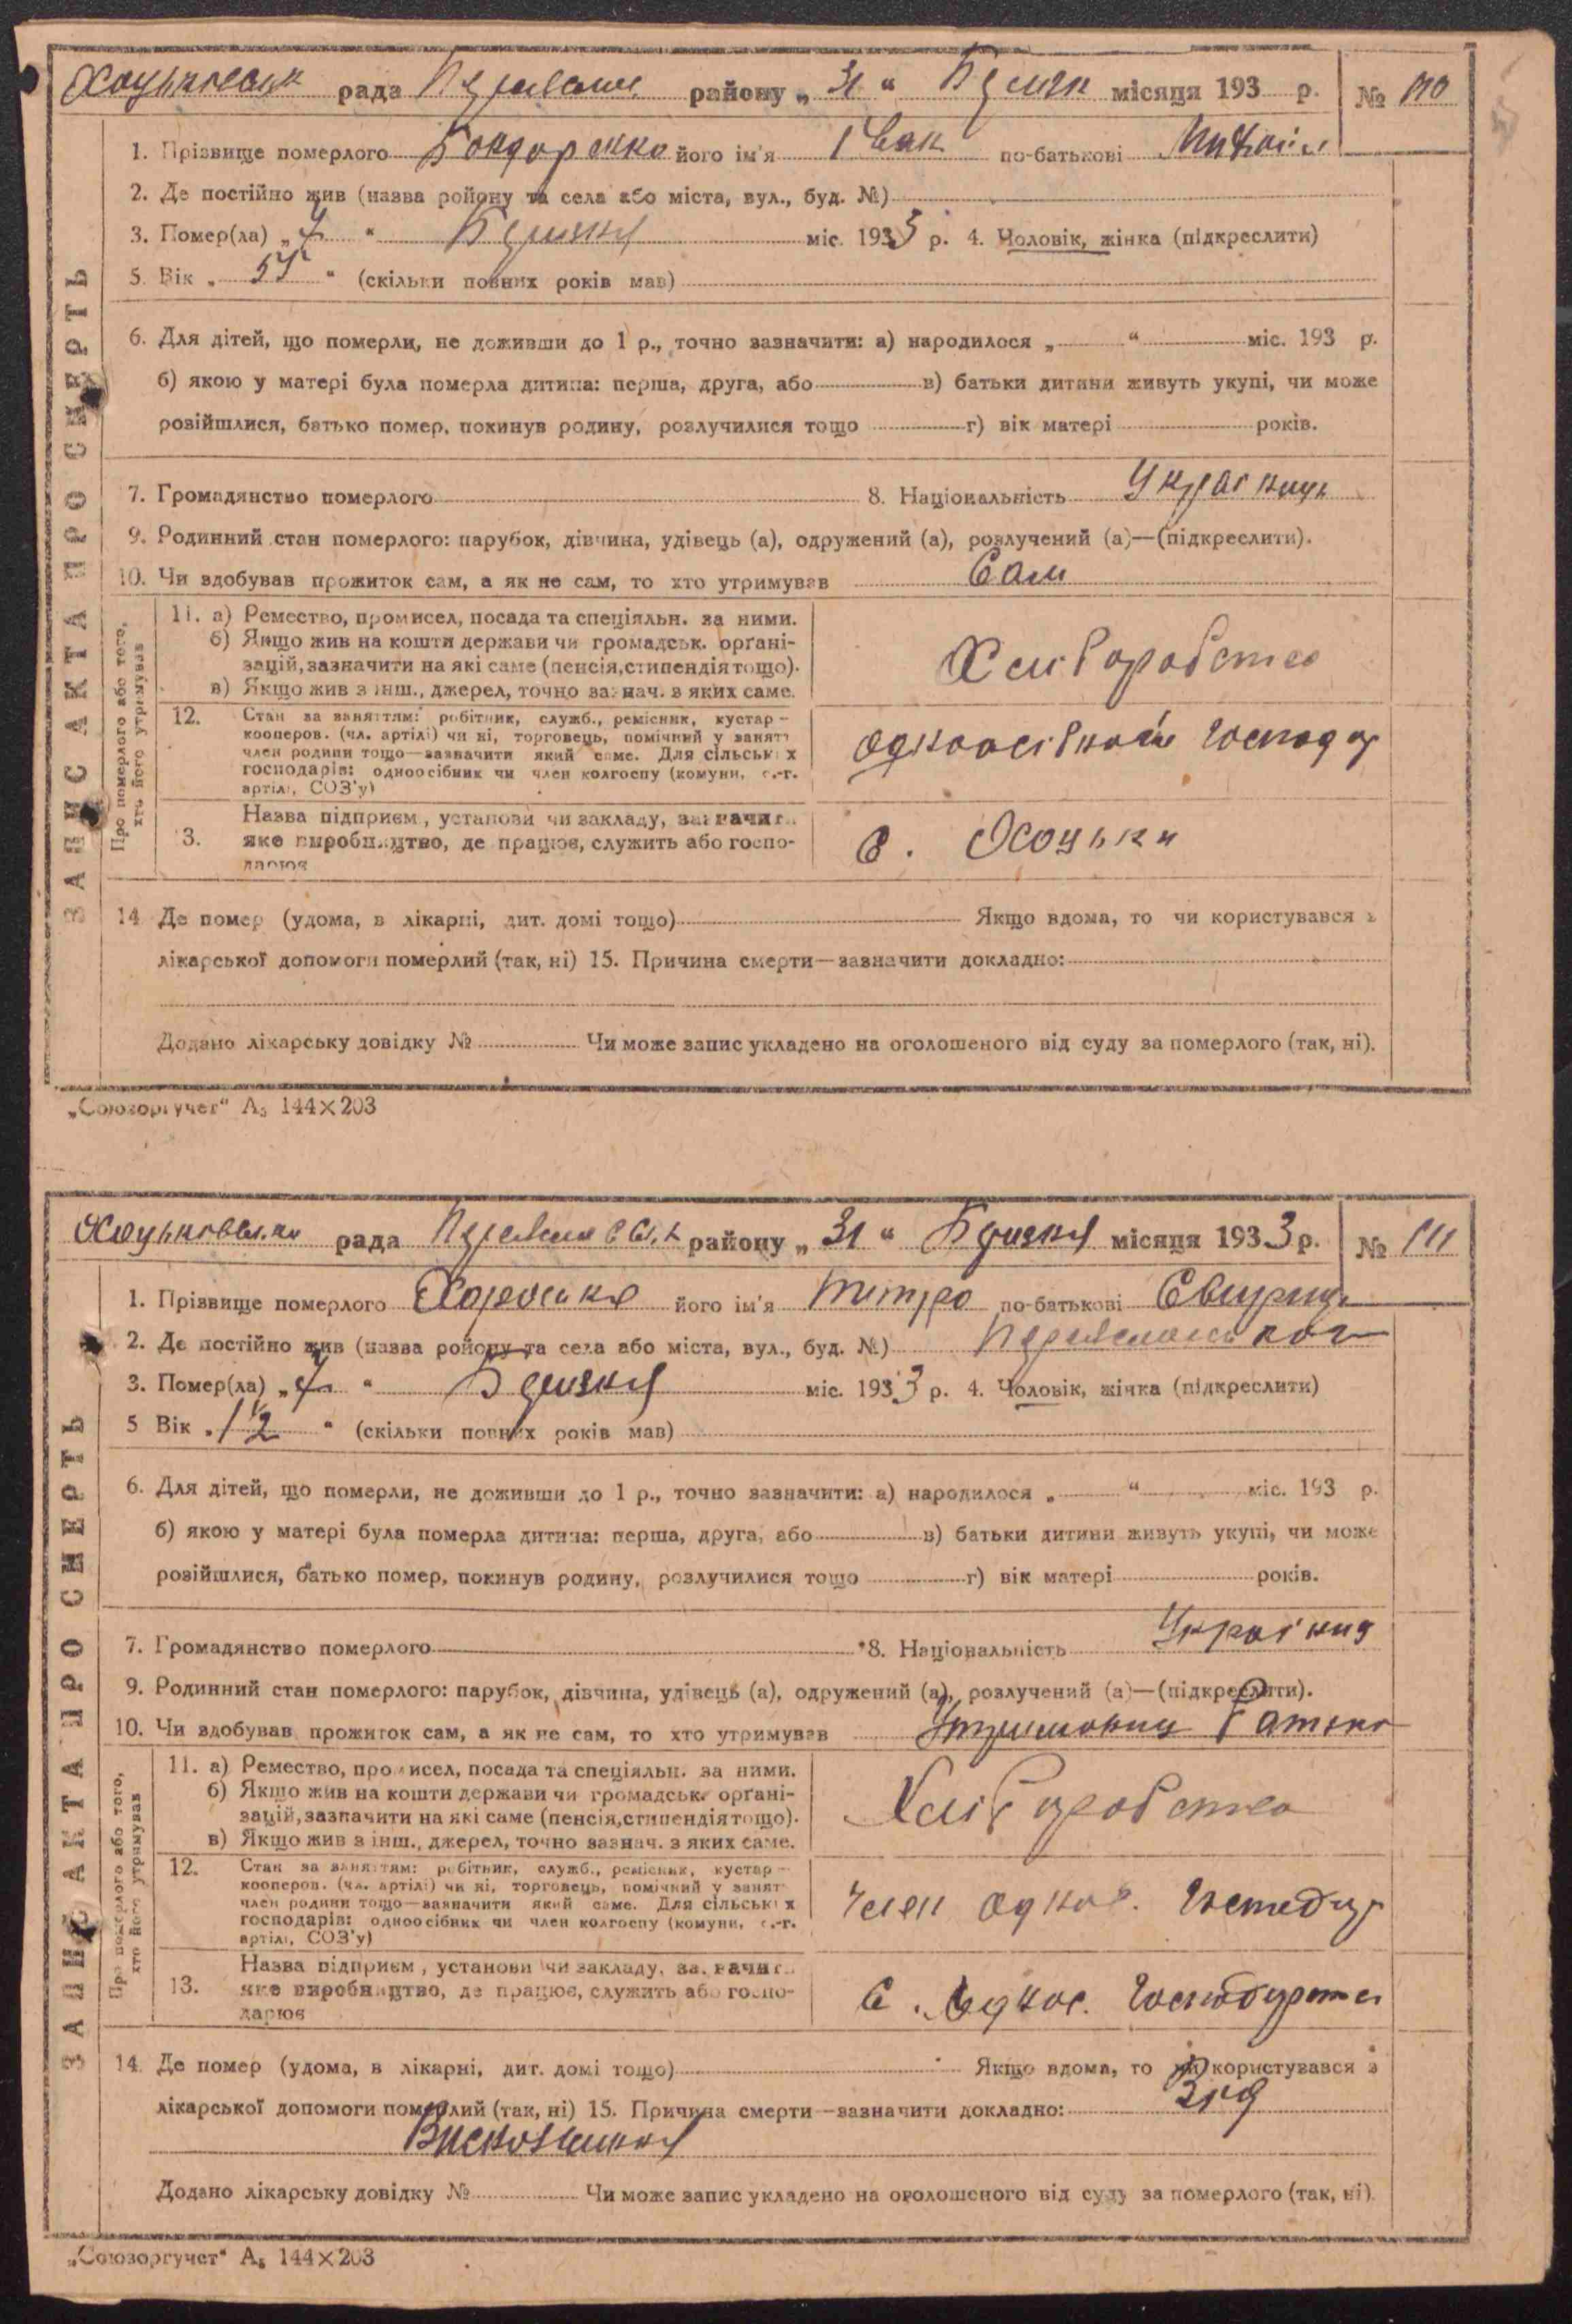 Хоцьківська рада Переяслав. району „31“ Грудня місяця 193 р. № 110
1. Прізвище померлого Бондаренко його ім'я Іван по-батькові
2. Де постійно жив (назва ройону та села або міста, вул., буд. №)
3. Помер(ла) „ “ міс. 1933 р. 4. Чоловік, жінка (підкреслити)
5. Вік „ “ (скільки повних років мав)
6. Для дітей, що померли, не доживши до 1 р., точно зазначити: а) народилося „ “ міс. 193 р.
б) якою у матері була померла дитина: перша, друга, або в) батьки дитини живуть укупі, чи може
розійшлися, батько помер, покинув родину, розлучилися тощо г) вік матері років.
7. Громадянство померлого 8. Національність Українець
9. Родинний стан померлого: парубок, дівчина, удівець (а), одружений (а), розлучений (а)—(підкреслити).
10. Чи здобував прожиток сам, а як не сам, то хто утримував Сам
ЗАПИС АКТА ПРО СМЕРТЬ
Про померлого або того,
хто його утримував
11. а) Ремество, промисел, посада та спеціяльн. за ними.
б) Якщо жив на кошти держави чи громадськ. орґані-
зацій, зазначити на які саме (пенсія, стипендія тощо).
в) Якщо жив з інш., джерел, точно зазнач. з яких саме.
Хліборобство
12. Стан за заняттям: робітник, служб., ремісник, кустар —
кооперов. (чл. артілі) чи ні, торговець, помічний у занятт
член родини тощо—зазначити який саме. Для сільських
господарів: одноосібник чи член колгоспу (комуни, с.-г.
артілі, СОЗ'у)
одноосібний господар
13. Назва підприєм, установи чи закладу, зазначити
яке виробництво, де працює, служить або госпо-
дарює
с. Хоцьки
14 Де помер (удома, в лікарні, дит. домі тощо) Якщо вдома, то чи користувався з
лікарської допомоги померлий (так, ні) 15. Причина смерти—зазначити докладно:
Додано лікарську довідку № Чи може запис укладено на оголошеного від суду за померлого (так, ні).
„Союзоргучет“ А₅ 144×203
Хоцьківська рада Переяславськ району „31“ Грудня місяця 1933 р. № 111
1. Прізвище померлого його ім'я по-батькові
2. Де постійно жив (назва ройону та села або міста, вул., буд. №)
3. Помер(ла) „ “ міс. 1933 р. 4. Чоловік, жінка (підкреслити)
5 Вік „1½“ (скільки повних років мав)
6. Для дітей, що померли, не доживши до 1 р., точно зазначити: а) народилося „ “ міс. 193 р.
б) якою у матері була померла дитина: перша, друга, або в) батьки дитини живуть укупі, чи може
розійшлися, батько помер, покинув родину, розлучилися тощо г) вік матері років.
7. Громадянство померлого 8. Національність
9. Родинний стан померлого: парубок, дівчина, удівець (а), одружений (а), розлучений (а)—(підкреслити).
10. Чи здобував прожиток сам, а як не сам, то хто утримував батько
ЗАПИС АКТА ПРО СМЕРТЬ
Про померлого або того,
хто його утримував
11. а) Ремество, промисел, посада та спеціяльн. за ними.
б) Якщо жив на кошти держави чи громадськ. орґані-
зацій, зазначити на які саме (пенсія, стипендія тощо).
в) Якщо жив з інш., джерел, точно зазнач. з яких саме.
Хліборобство
12. Стан за заняттям: робітник, служб., ремісник, кустар —
кооперов. (чл. артілі) чи ні, торговець, помічний у занятт
член родини тощо—зазначити який саме. Для сільських
господарів: одноосібник чи член колгоспу (комуни, с.-г.
артілі, СОЗ'у)
член однос. господар
13. Назва підприєм, установи чи закладу, зазначити
яке виробництво, де працює, служить або госпо-
дарює
однос.
14. Де помер (удома, в лікарні, дит. домі тощо) Якщо вдома, то чи користувався з
лікарської допомоги померлий (так, ні) 15. Причина смерти—зазначити докладно: Від
Виснаження
Додано лікарську довідку № Чи може запис укладено на оголошеного від суду за померлого (так, ні).
„Союзоргучет“ А₅ 144×203